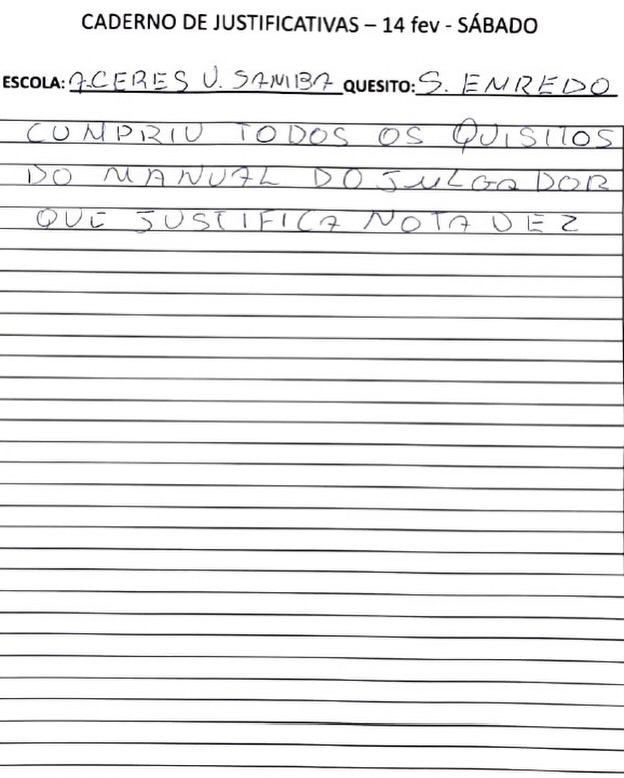 CADERNO DE JUSTIFICATIVAS – 14 fev - SÁBADO
ESCOLA: A.CERES U. SAMBA QUESITO: S. ENREDO
CUMPRIU TODOS OS QUISITOS
DO MANUAL DO JULGADOR
QUE JUSTIFICA NOTA DEZ